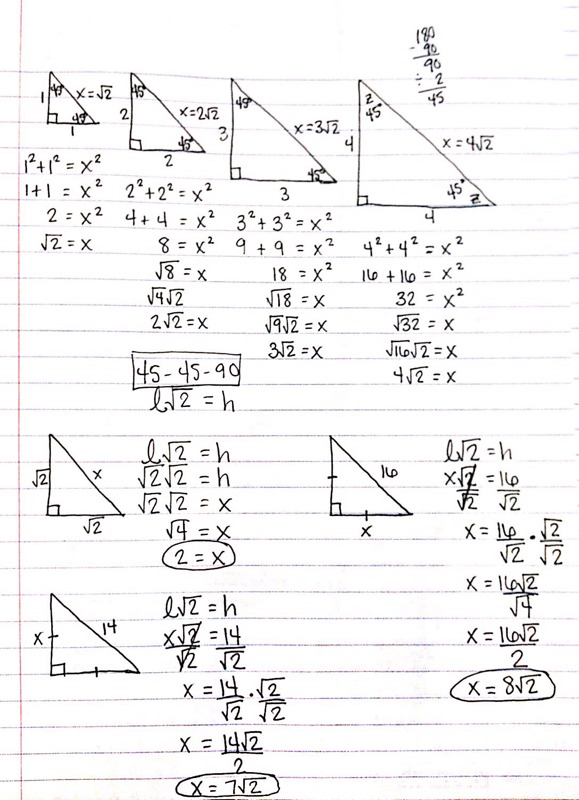 180
- 90
90
÷ 2
45
1
45°
x=√2
45°
1
2
45°
x=2√2
45°
2
3
45°
x=3√2
45°
3
4
z
45°
x=4√2
45°
z
4
1²+1² = x²
1+1 = x²
2 = x²
√2 = x
2²+2² = x²
4+4 = x²
8 = x²
√8 = x
√4√2
2√2 = x
3²+3² = x²
9 + 9 = x²
18 = x²
√18 = x
√9√2 = x
3√2 = x
4²+4² = x²
16+16 = x²
32 = x²
√32 = x
√16√2 = x
4√2 = x
45-45-90
l√2 = h
√2
x
√2
l√2 = h
√2√2 = h
√2√2 = x
√4 = x
2 = x
16
x
l√2 = h
x√2 = 16
√2 √2
x = 16 • √2
√2 √2
x = 16√2
√4
x = 16√2
2
x = 8√2
x
14
l√2 = h
x√2 = 14
√2 √2
x = 14 • √2
√2 √2
x = 14√2
2
x = 7√2